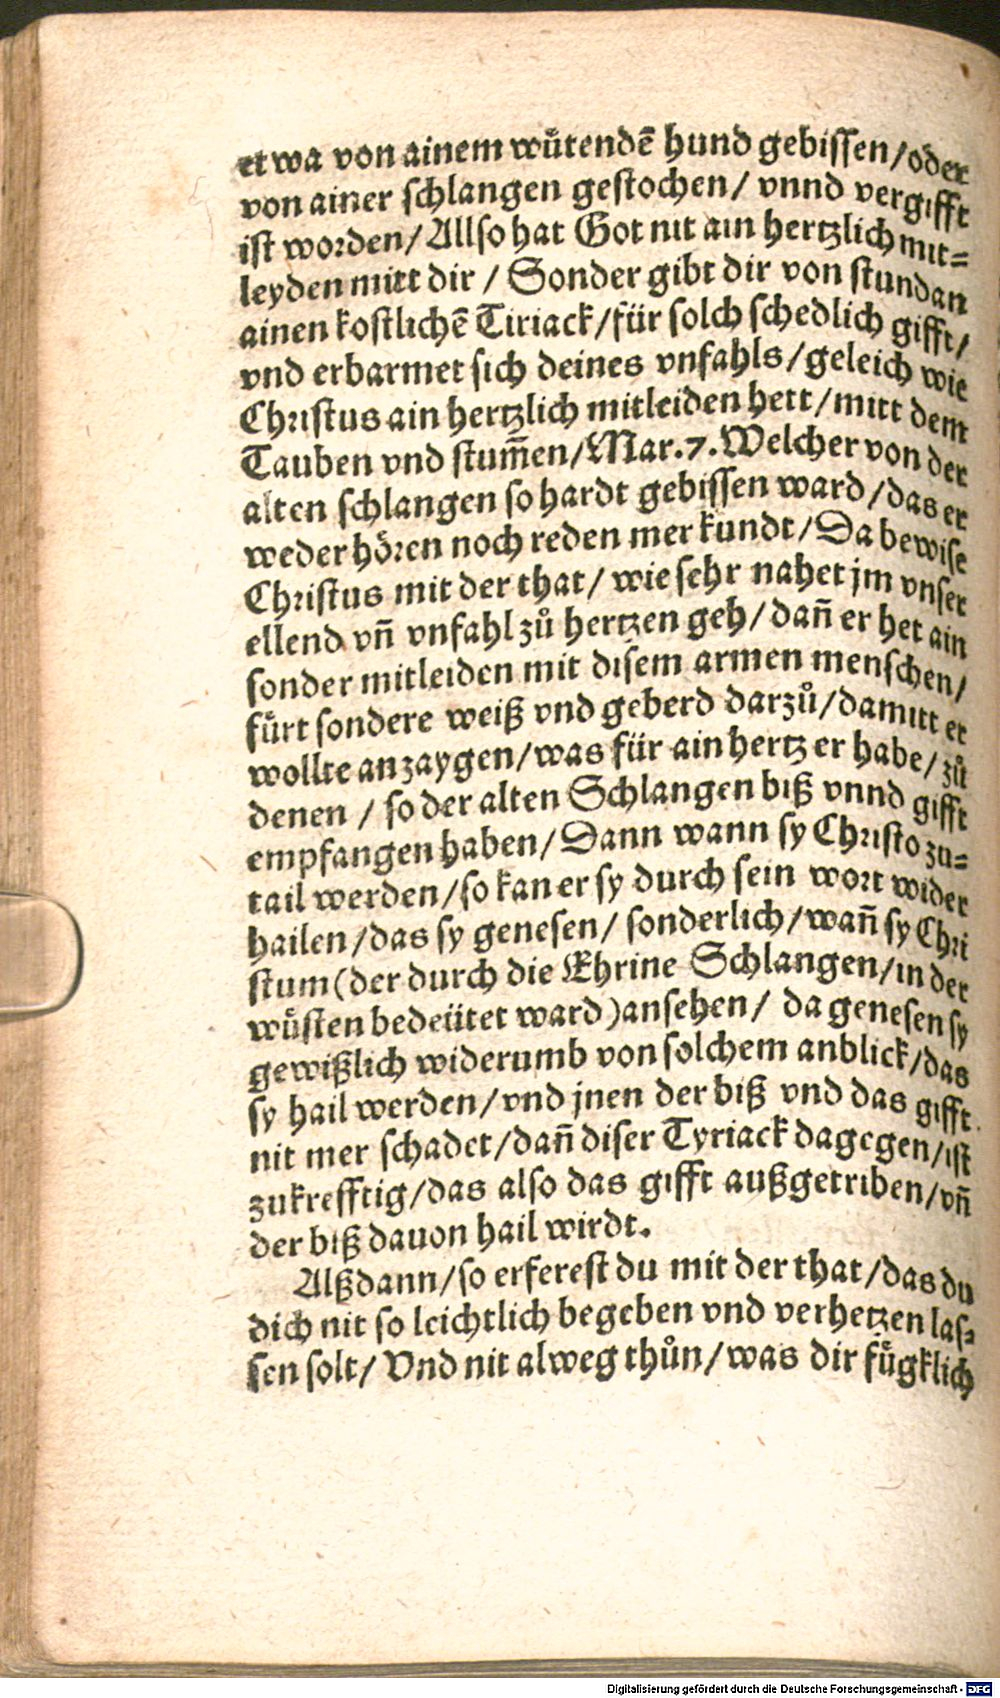 etwa von ainem wuͤtendē hund gebissen/oder
von ainer schlangen gestochen/ vnnd vergifft
ist worden/Allso hat Got nit ain hertzlich mit-
leyden mitt dir / Sonder gibt dir von stundan
ainen kostlichē Tiriack/für solch schedlich gifft/
vnd erbarmet sich deines vnfahls/geleich wie
Christus ain hertzlich mitleiden hett/mitt dem
Tauben vnd stum̄en/Mar.7.Welcher von der
alten schlangen so hardt gebissen ward/das er
weder hören noch reden mer kundt/Da bewise
Christus mit der that/ wie sehr nahet jm vnser
ellend vn̄ vnfahl zuͦ hertzen geh/dan̄ er het ain
sonder mitleiden mit disem armen menschen/
fuͤrt sondere weiß vnd geberd darzuͦ/damitt er
wollte anzaygen/was für ain hertz er habe/zuͦ
denen / so der alten Schlangen biß vnnd gifft
empfangen haben/Dann wann sy Christo zu-
tail werden/so kan er sy durch sein wort wider
hailen/das sy genesen/ sonderlich/wan̄ sy Chri
stum(der durch die Ehrine Schlangen/in der
wuͤsten bedeütet ward)ansehen/ da genesen sy
gewißlich widerumb von solchem anblick/das
sy hail werden/vnd jnen der biß vnd das gifft
nit mer schadet/dan̄ diser Tyriack dagegen/ist
zukrefftig/das also das gifft außgetriben/vn̄
der biß dauon hail wirdt.
Alßdann/so erferest du mit der that/das du
dich nit so leichtlich begeben vnd verhetzen las-
sen solt/ Vnd nit alweg thuͦn/was dir fuͤgklich
Digitalisierung gefördert durch die Deutsche Forschungsgemeinschaft - DFG